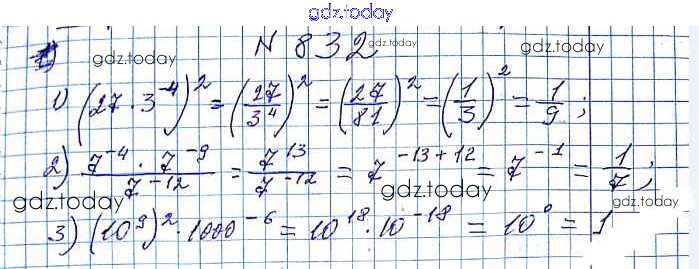 gdz.today
N 832
gdz.today gdz.today gdz.today
1) (27 · 3^-4)^2 = (27/3^4)^2 = (27/81)^2 = (1/3)^2 = 1/9 ;
2) 7^-4 · 7^-9 / 7^-12 = 7^13 / 7^-12 = 7^-13+12 = 7^-1 = 1/7 ;
gdz.today gdz.today gdz.today
3) (10^9)^2 · 1000^-6 = 10^18 · 10^-18 = 10^0 = 1